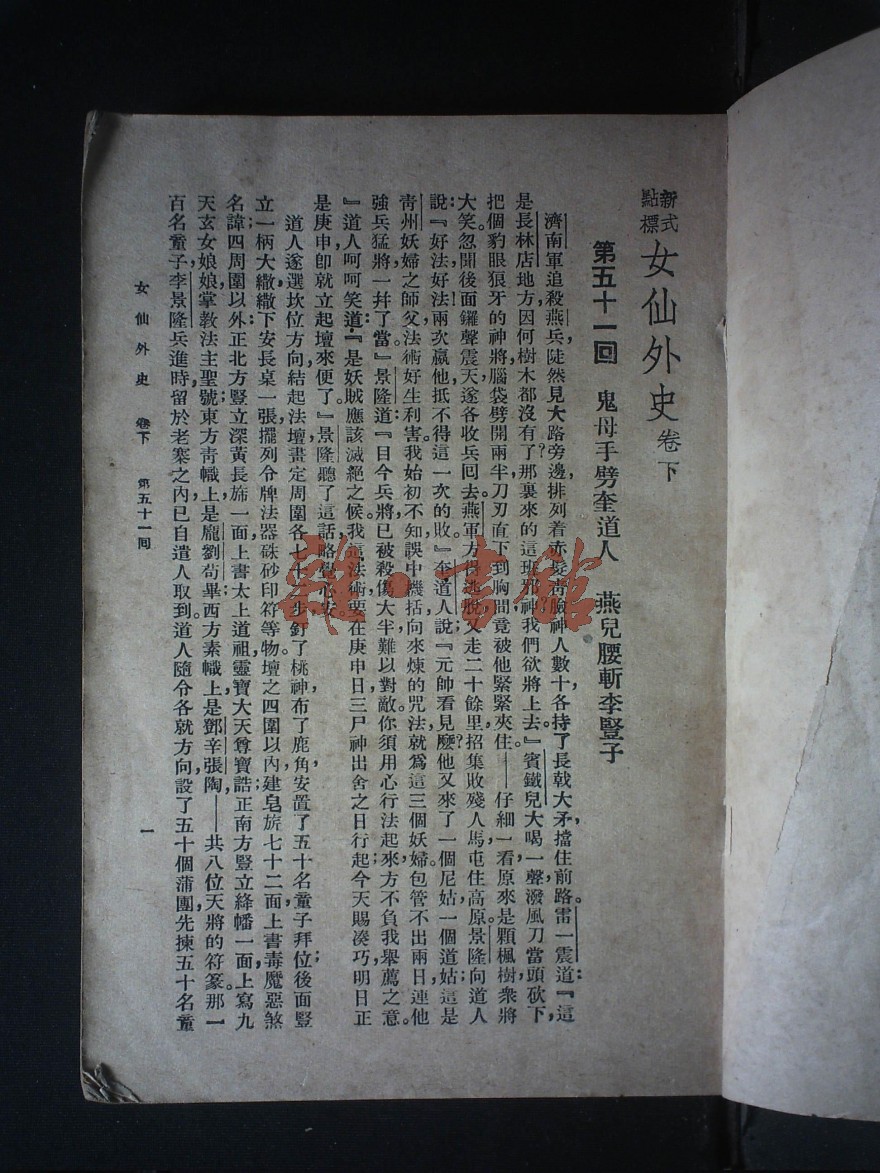 新式
標點
女仙外史 卷下
第五十一回 鬼母手劈奎道人 燕兒腰斬李豎子
濟南軍追殺燕兵,陡然見大路旁邊,排列着赤髮靑臉神人數十,各持了長戟大矛,擋住前路。雷一震道:『這
是長林店地方,因何樹木都沒有了?那裏來的這班邪神?我們欲將上去。』賓鐵兒大喝一聲,潑風刀當頭砍下,
把個豹眼狼牙的神將腦袋劈開兩半,刀刃直下到胸間,竟被他緊緊夾住——仔細一看,原來是顆楓樹。衆將
大笑。忽聞後面鑼聲震天,遂各收兵回去。燕軍方得逃脫,又走二十餘里,招集敗殘人馬,屯住高原。景隆向道人
說:『好法好法,兩次嬴他,抵不得這一次的敗。』奎道人說:『元帥看見麽?他又來了一個尼姑,一個道姑,這是
靑州妖婦之師父,法術好生利害。我始初不知,誤中機括,向來煉的咒法,就爲這三個妖婦,包管不出兩日,連他
強兵猛將一幷了當。』景隆道:『目今兵將已被殺傷大半,難以對敵。你須用心行法起來,方不負我舉薦之意。
』道人呵呵笑道:『是妖賊應該滅絕之候。我這法術,要在庚申日三尸神出舍之日行起,今天賜凑巧,明日正
是庚申,卽就立起壇來便了。』景隆聽了這話,略覺心安。
道人遂選坎位方向,結起法壇,畫定周圍各七十二步,釘了桃神,布了鹿角,安置了五十名童子拜位,後面豎
立一柄大繖,繖下安長桌一張,擺列令牌法器硃砂印符等物。壇之四圍以內,建皂旂七十二面,上書毒魔惡煞
名諱,四周圍以外,正北方豎立深黃長旂一面,上書太上道祖靈寶大天尊寶誥,正南方豎立絳幡一面,上寫九
天玄女娘娘掌教法主聖號,東方靑幟上,是龐劉茍畢,西方素幟上,是鄧辛張陶——共八位天將的符篆。那一
百名童子,李景隆兵進時,留於老寨之內,已自遣人取到。道人隨令各就方向,設了五十個蒲團,先揀五十名童
女仙外史 卷下 第五十一回 一
雜·書館